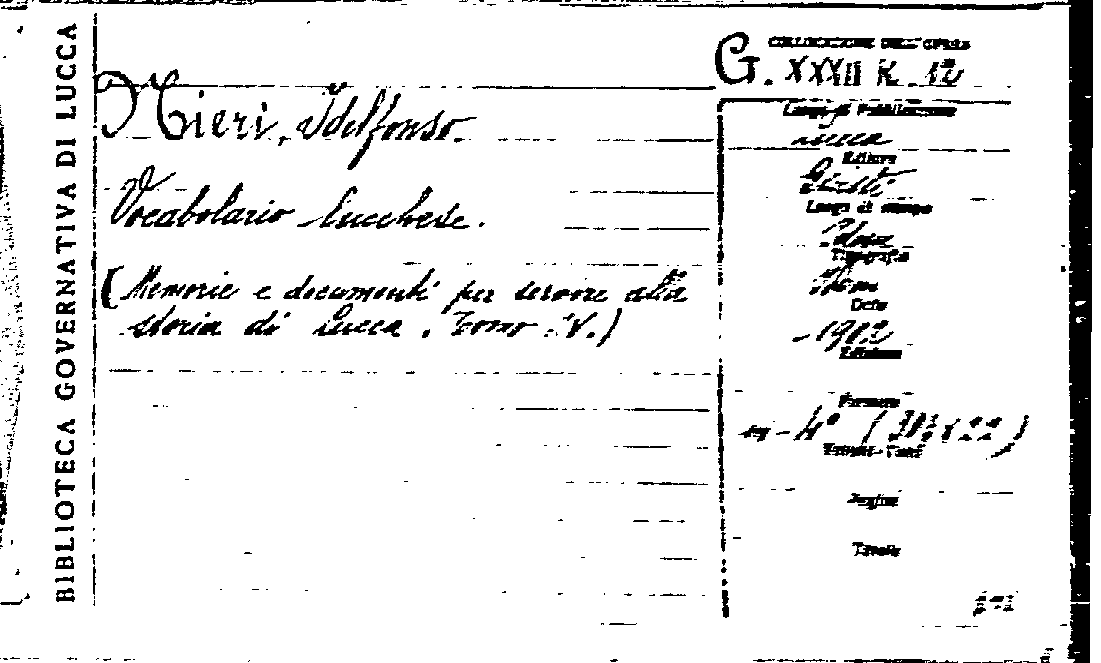 BIBLIOTECA GOVERNATIVA DI LUCCA
Nieri, Idelfonso.
Vocabolario Lucchese.
(Memorie e documenti per servire alla
storia di Lucca. Tomo XV.)
COLLOCAZIONE DELL'OPERA
G. XXXII K. 12
Luogo di Pubblicazione
Lucca
Editore
Giusti
Luogo di stampa
Tipografia
Data
1902
Edizione
Formato
in-4°
Volumi-Tomi
Pagine
Tavole